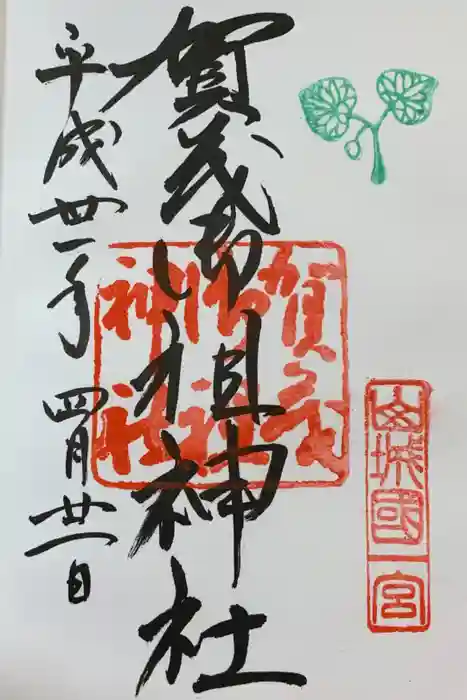 山城國一宮
賀茂御祖神社
賀茂
御祖
神社
平成丗一年四月廿一日